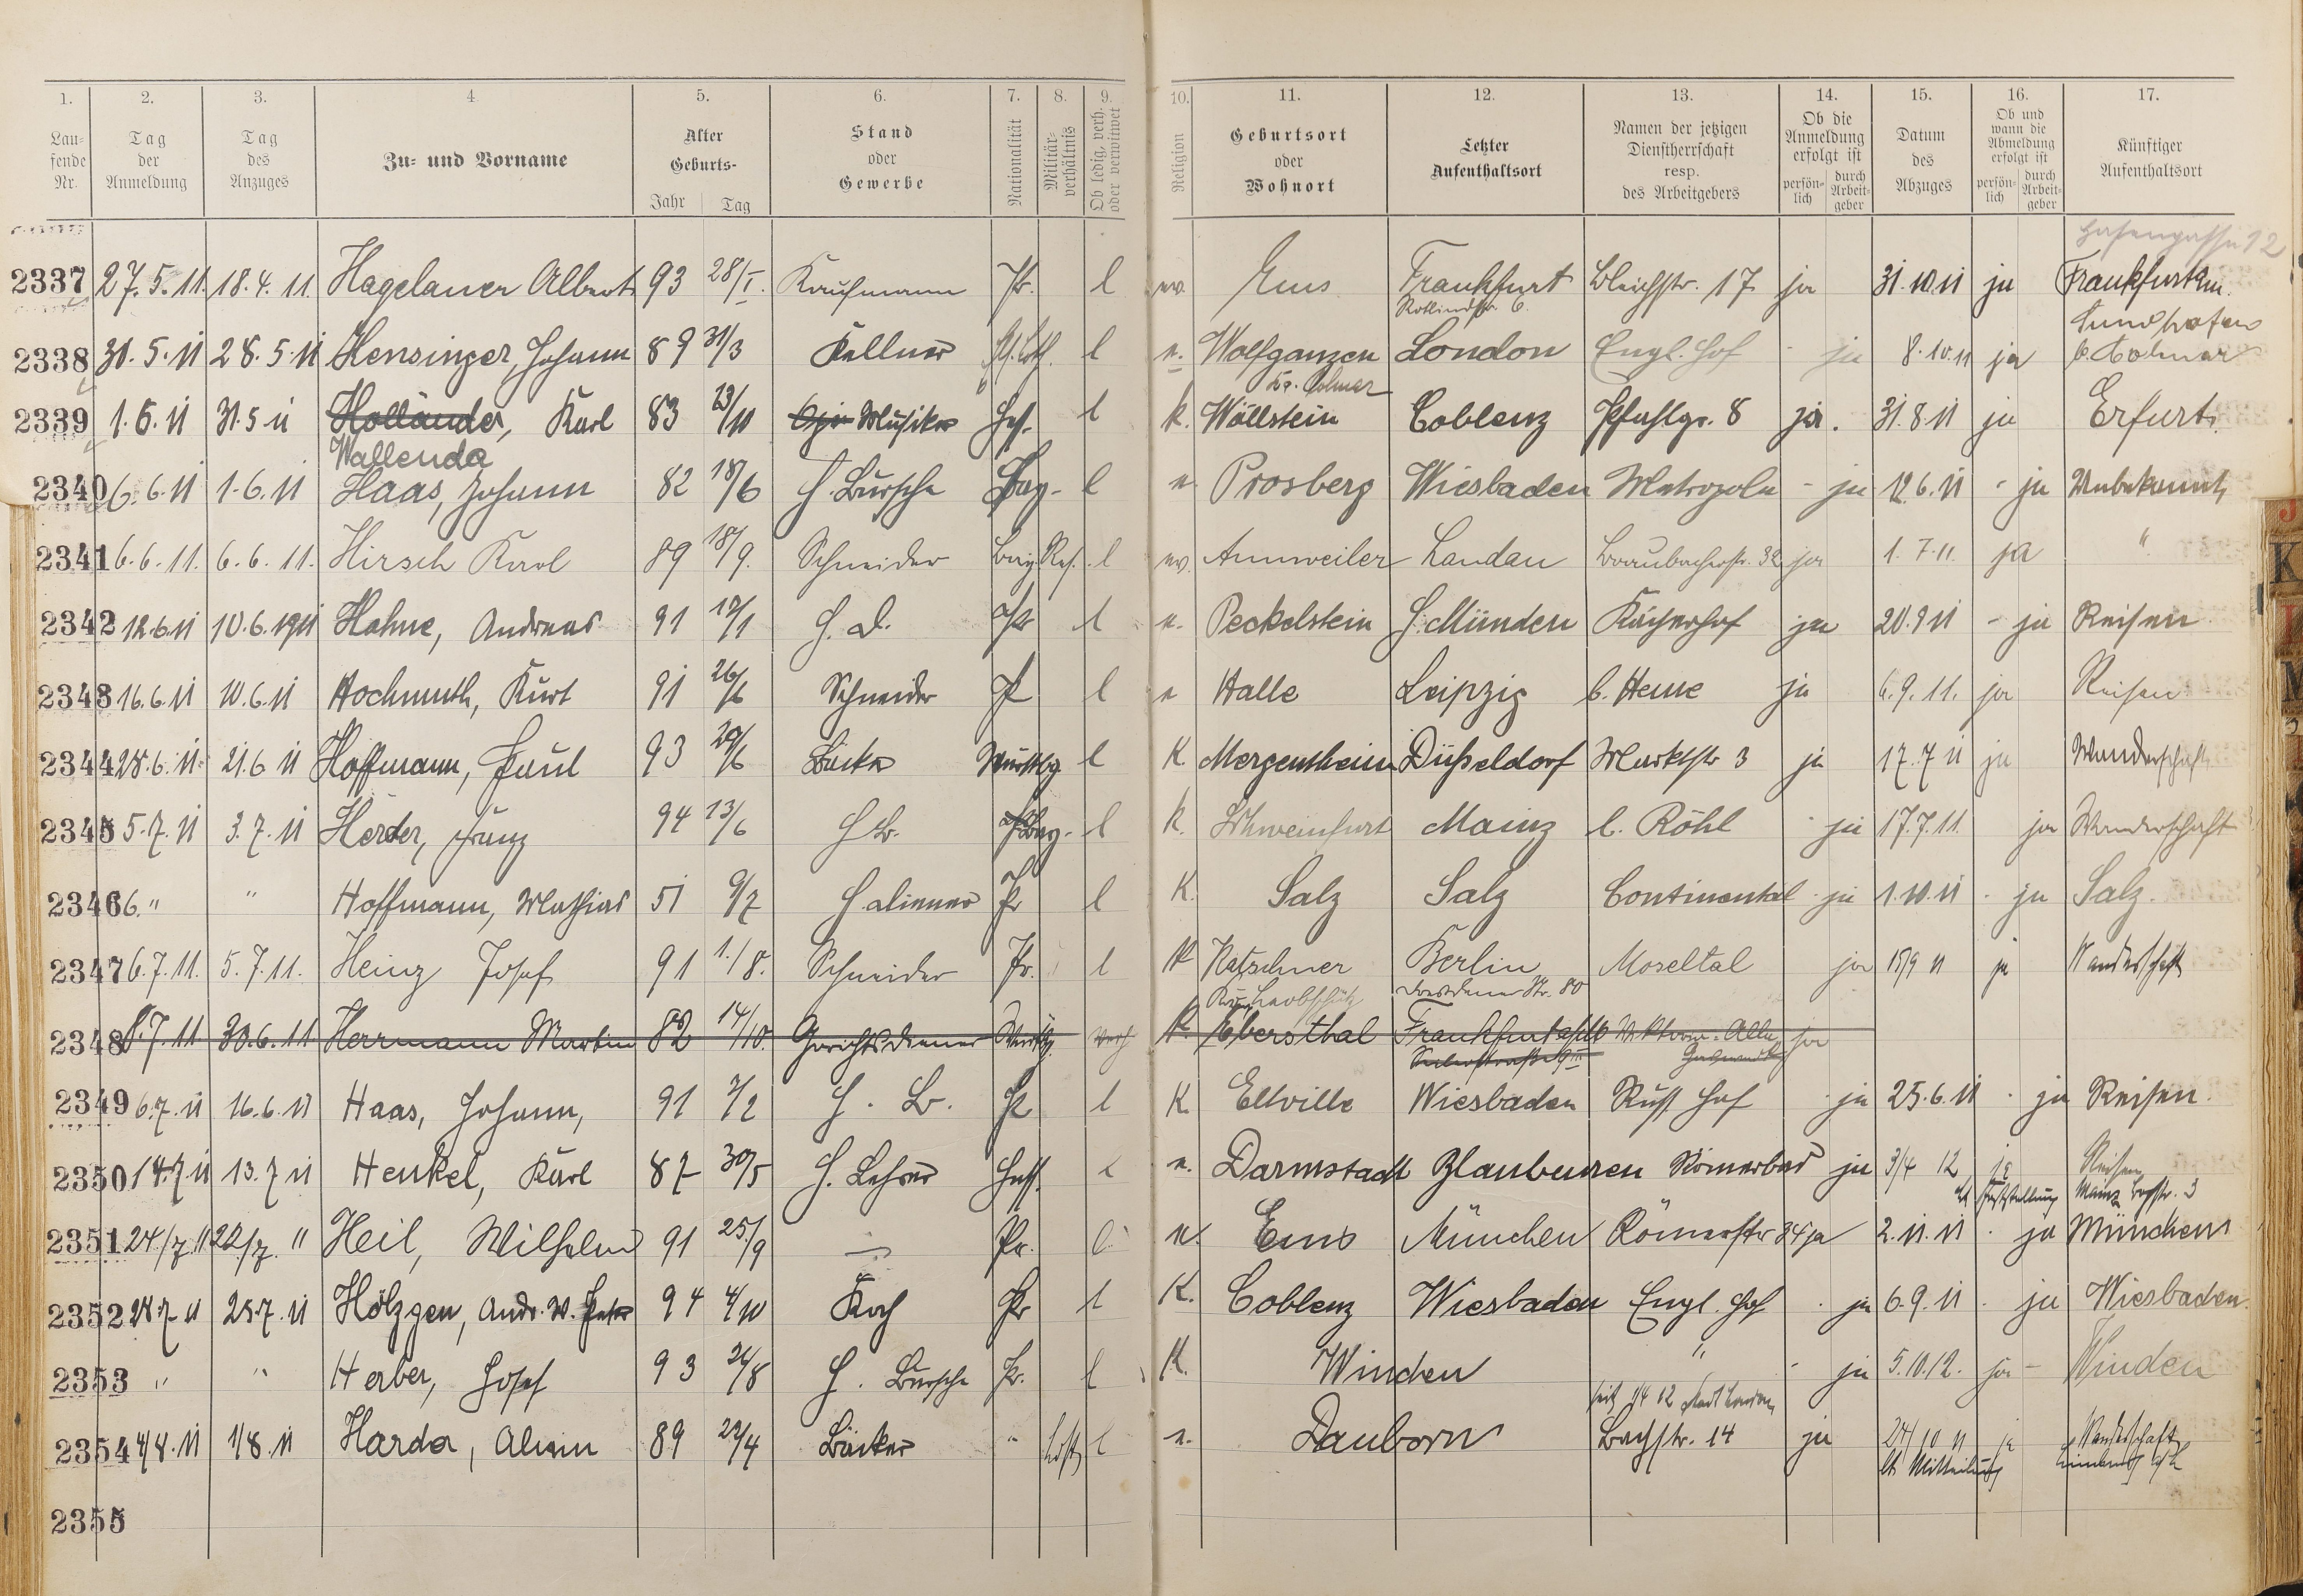 1. 2. 3. 4. 5. 6. 7. 8. 9. 10. 11. 12. 13. 14. 15. 16. 17.
Laufende Nr.
Tag der Anmeldung
Tag des Anzuges
Zu- und Vorname
Alter Geburts-
Jahr Tag
Stand oder Gewerbe
Nationalität
Militärverhältnis
Ob ledig, verh. oder verwitwet
Religion
Geburtsort oder Wohnort
Letzter Aufenthaltsort
Namen der jetzigen Dienstherrschaft resp. des Arbeitgebers
Ob die Anmeldung erfolgt ist
persönlich durch Arbeitgeber
Datum des Abzuges
Ob und wann die Abmeldung erfolgt ist
persönlich durch Arbeitgeber
Künftiger Aufenthaltsort
Hasengasse 12
2337 27.5.11. 18.4.11. Hagelauer Albert 93 28/I. Kaufmann Pr. l ev. Ems Frankfurt Bleichstr. 17 ja 31.10.11 ja Frankfurt
6.
Sundhofen
2338 31.5.11 28.5.11 Hensinger, Johann 89 31/3 Kellner l e. Wolfganzen London Engl. Hof - ja 8.10.11 ja b. Colmar
Colmar
2339 1.6.11 31.5.11 Holländer, Karl 83 23/10 Musiker Hess. l k. Wöllstein Coblenz Pfuhlgr. 8 ja. 31.8.11 ja Erfurt
Wallenda
2340 6.6.11 1.6.11 Haas, Johann 82 18/6 H. Bursche Bay. l e. Prosberg Wiesbaden Metropole - ja 12.6.11 - ja Unbekannt
2341 6.6.11. 6.6.11. Hirsch Karl 89 18/9. Schneider Bay. Res. l ev. Annweiler Landau Braubacherstr. 32 ja 1.7.11. ja "
2342 12.6.11 10.6.1911 Hahne, Andreas 91 12/1 H. D. Pr l e. Peckelstein H. Münden Kaiserhof ja 20.9.11 - ja Reisen
2343 16.6.11 10.6.11 Hochmuth, Kurt 91 26/6 Schneider Pr l e Halle Leipzig b. Heine ja 6.9.11. ja Reisen
2344 28.6.11 21.6.11 Hoffmann, Paul 93 29/6 Bäcker Württbg l K Mergentheim Düsseldorf Marktstr 3 ja 17.7.11 ja Wanderschaft
2345 5.7.11 3.7.11 Herder, Franz 94 13/6 H B. Bay. l k. Schweinfurt Mainz b. Röhl - ja 17.7.11. ja Wanderschaft
2346 6. " " Hoffmann, Mathias 51 9/7 H. diener Pr l K. Salz Salz Continental - ja 1.10.11 - ja Salz.
2347 6.7.11. 5.7.11. Heinz Josef 91 1./8. Schneider Pr. l K Katscher Berlin Moseltal ja 15/9 11 ja Wanderschaft
Leobschütz Dresdener Str. 80
2348 8.7.11. 30.6.11. Herrmann Martin 82 14/10. Gerichtsdiener Württbg. verh k. Ebersthal Frankfurt a/M Viktoria-Allee ja
2349 6.7.11 16.6.11 Haas, Johann, 91 7/2 H. B. Pr l K Eltville Wiesbaden Russ. Hof - ja 25.6.11 - ja Reisen.
2350 14.7.11 13.7.11 Henkel, Karl 87 30/5 H. Lehrer Hess. l e. Darmstadt Blaubeuren Römerbad ja 3/4 12 ja Reisen
lt Feststellung Mainz 3
2351 24/7 11 22/7. 11 Heil, Wilhelm 91 25./9 — Pr. l. e. Ems München Römerstr 34 ja 2.11.11 - ja München
2352 28.7.11 25.7.11 Hölzgen, Andr. W. Peter 94 4/10 Koch Pr l K. Coblenz Wiesbaden Engl. Hof - ja 6.9.11 - ja Wiesbaden.
2353 " " Herber, Josef 93 24/8 H. Bursche Pr. l K. Winden " - ja 5.10.12. ja - Winden
seit 1/4 12 Stadt London
2354 4/8.11 1/8.11 Harda, Alwin 89 22/4 Bäcker " l e. Dauborn Bachstr. 14 ja 24/10 11 ja Wanderschaft
lt. Mitteilung
2355